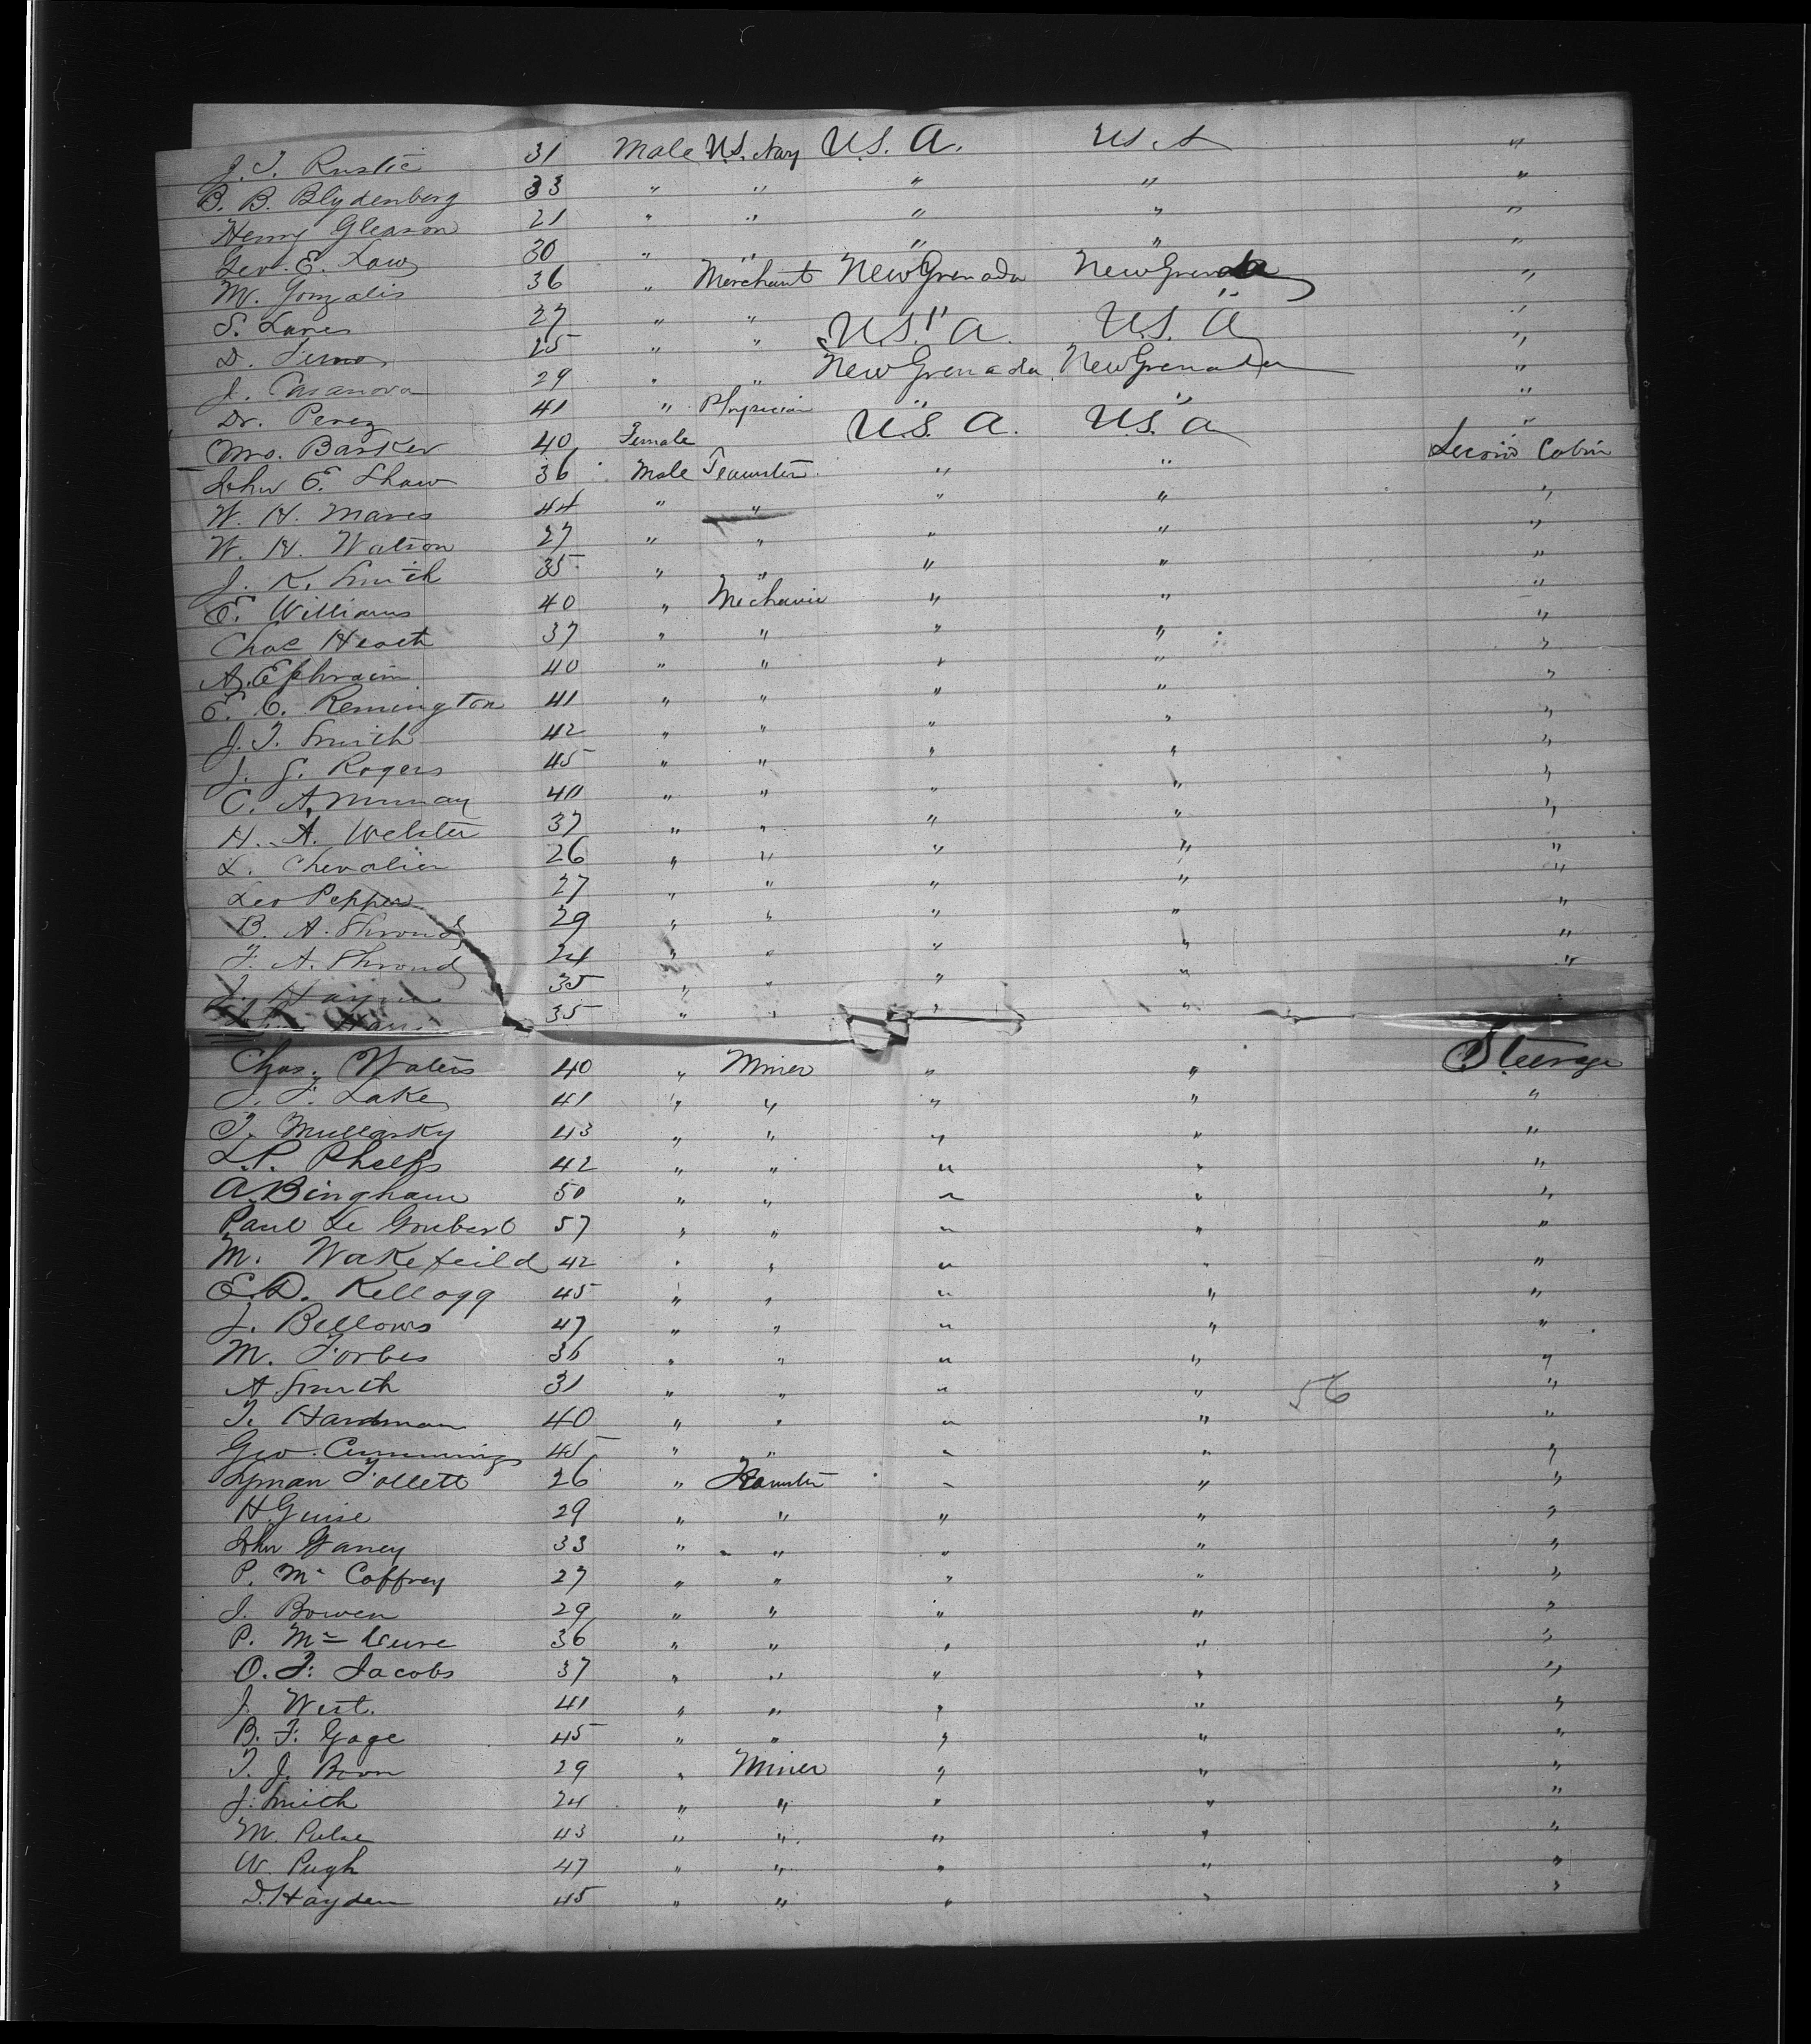 J. T. Rustic 31 Male U.S. Navy U.S. A. US. A "
B. B. Blydenberg 33 " " " " "
Henry Gleason 21 " " " " "
Geo. E. Law 30 " " " " "
M. Gonzalis 36 " Merchant New Grenada New Grenada "
S. Lanes 27 " " " " "
D. 25 " " U.S. A. U.S. A "
J. Casanova 29 " " New Grenada New Grenada "
Dr. Perez 41 " Physician " " "
Mrs. Barker 40 Female U.S. A. U.S. A "
John E. Shaw 36 Male Teamster " " Second Cabin
W. H. Mares 44 " " " " "
W. H. Watson 27 " " " " "
J. K. Smith 35 " " " " "
E. Williams 40 " Mechanic " " "
Chas Heath 37 " " " " "
A. Ephraim 40 " " " " "
E. C. Remington 41 " " " " "
J. T. Smith 42 " " " " "
J. S. Rogers 45 " " " " "
C. A. Murray 40 " " " " "
H. A. Webster 37 " " " " "
L. Chevalier 26 " " " " "
Leo Pepper 27 " " " " "
B. A. Shroud 29 " " " " "
F. A. Shroud 24 " " " " "
J. 35 " " " " "
35 " " " "
Chas. Waters 40 " Miner " " Steerage
J. F. Lake 41 " " " " "
T. Mullarky 43 " " " " "
L.P. Phelps 42 " " " " "
A. Bingham 50 " " " " "
Paul Le Goubert 57 " " " " "
M. Wakefeild 42 " " " " "
E.D. Kellogg 45 " " " " "
J. Bellows 47 " " " " "
M. Forbes 36 " " " " "
A Smith 31 " " " " 56 "
T. Hardman 40 " " " " "
Geo. Cummings 45 " " " " "
Lyman Follett 26 " Teamster " " "
H. Guise 29 " " " " "
John Ganey 33 " " " " "
P. Mc Caffrey 27 " " " " "
J. Bowen 29 " " " " "
P. Mc 36 " " " " "
O. F. Jacobs 37 " " " " "
J. West. 41 " " " " "
B. F. Gage 45 " " " " "
T. J. Boon 29 " Miner " " "
J. Smith 24 " " " " "
M. Pulse 43 " " " " "
W. Pugh 47 " " " " "
D. Hayden 45 " " " " "